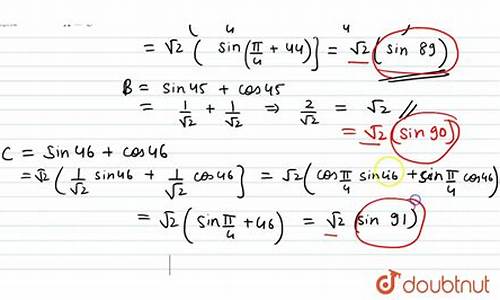 = √2 ( sin(π/4 + 44)] = √2 (sin 89)
B = sin45 + cos45
= 1/√2 + 1/√2 ⇒ 2/√2 = √2 //
= √2 (sin 90)
C = Sin46 + cos46
= √2 ( 1/√2 sin46 + 1/√2 cos46 ] = √2 ( cos π/4 sin46 + sin π/4 cos46 )
= √2 ( sin π/4 + 46 ) = √2 (sin 91)
doubtnut